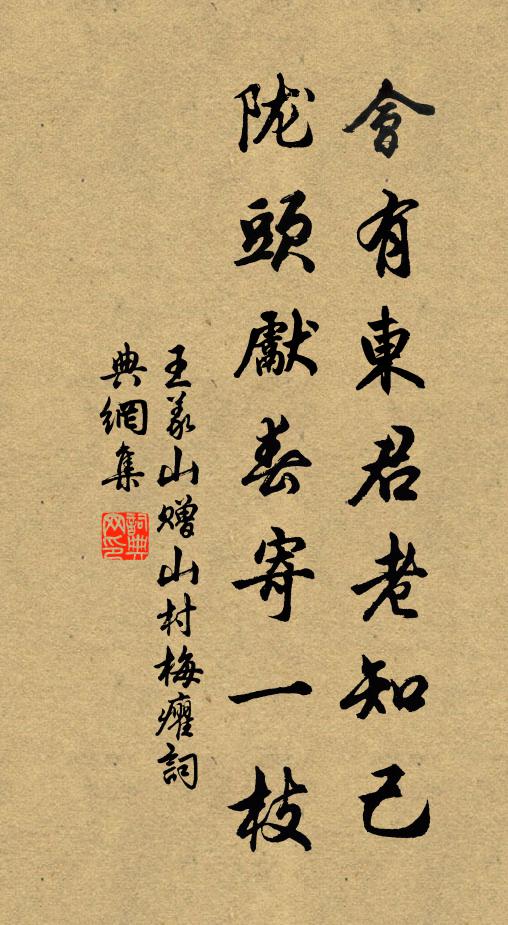 會有東君老知己
陇頭獻春寄一枝
王義山赠山村梅癯詞
典網集
詞典
网印